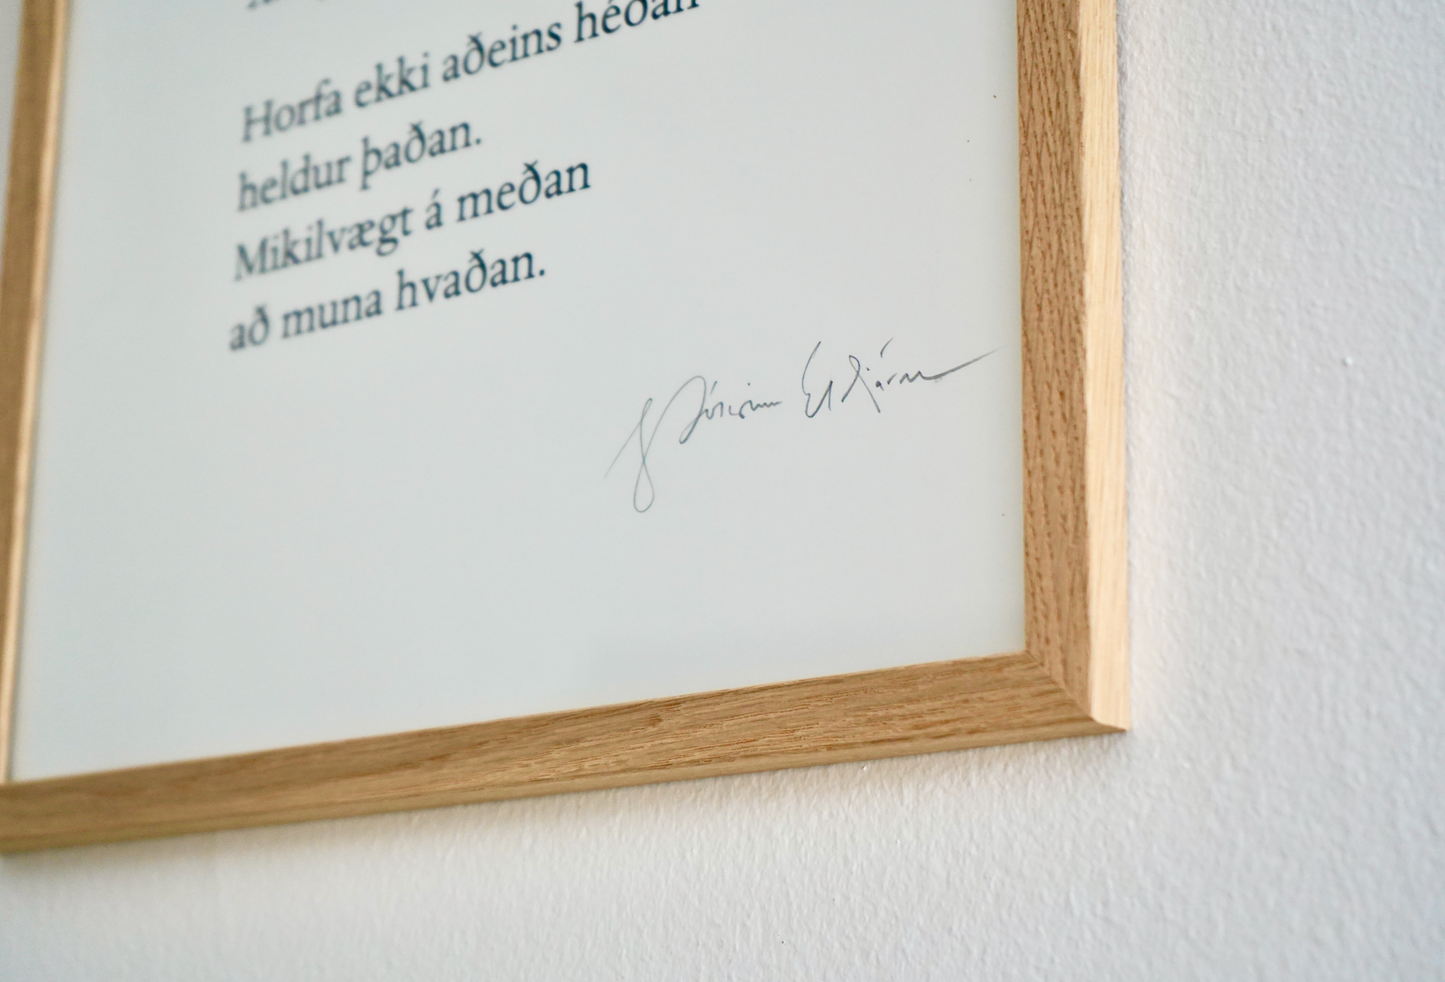 Horfa ekki aðeins héðan
heldur þaðan.
Mikilvægt á meðan
að muna hvaðan.
Þórarinn Eldjárn